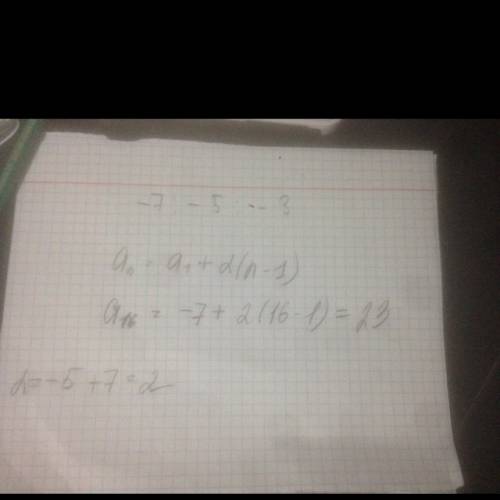 -7 -5 -3
aₙ = a₁ + d(n-1)
a₁₆ = -7 + 2(16-1) = 23
d = -5 + 7 = 2